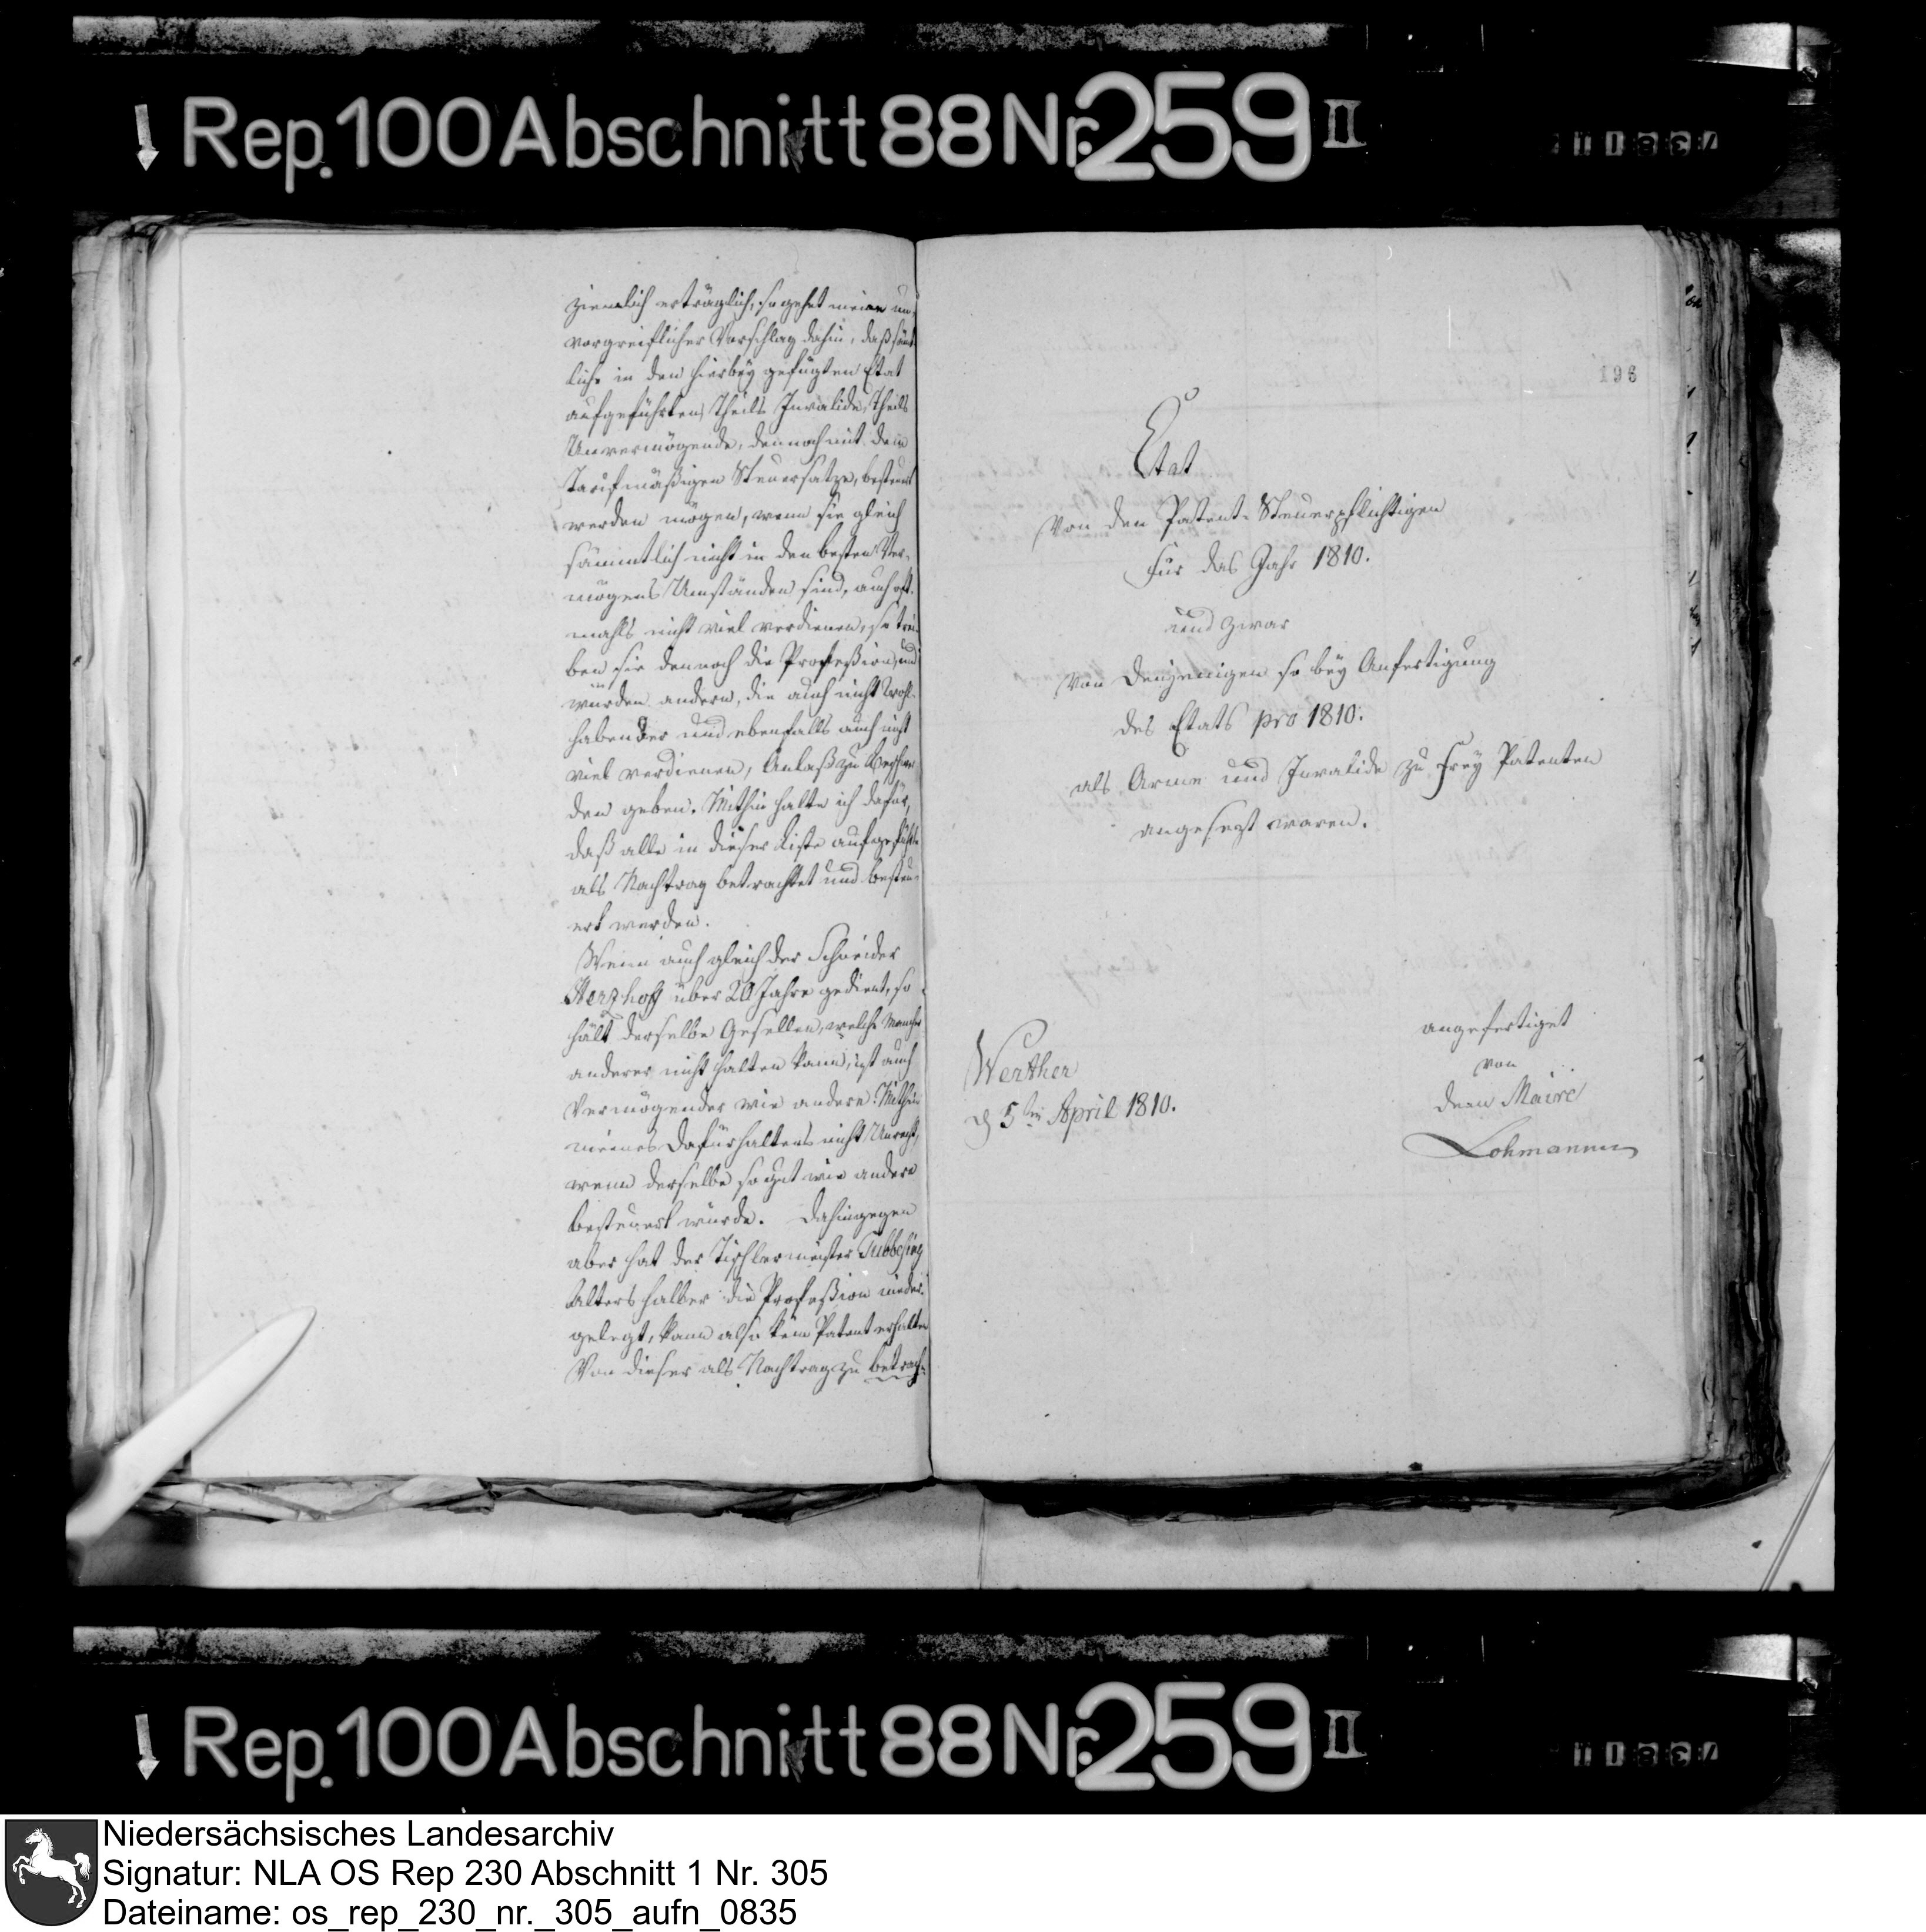 Rep. 100 Abschnitt 88 Nr. 259 II
ziemlich erträglich, so gehet mein un-
vorgreiflicher Vorschlag dahin, daß sämt
liche in den hierbey gefügten Etat
aufgeführten, Theils Invalide, Theils
Unvermögende, dennoch mit dem
Tarifmäßigen Steuersatze, besteuert
werden mögen, wenn sie gleich
sämmtlich nicht in den besten Ver-
mögens Umständen sind, auch oft-
mahls nicht viel verdienen, so trei-
ben sie dennoch die Profeßion, und
würden andern, die auch nicht wohl-
habender und ebenfalls auch nicht
viel verdienen, Anlaß zu Beschwer
den geben. Mithin halte ich dafür,
daß alle in dieser Liste aufgeführte
als Nachtrag betrachtet und besteu-
ert werden.
Wenn auch gleich der Schneider
Herzhoff über 20 Jahre gedient, so
hält derselbe Gesellen, welche mancher
anderer nicht halten kann, ist auch
Vermögender wie andere. Mithin
meines Dafürhaltens nicht Unrecht,
wenn derselbe so gut wie andere
besteuert würde. Dahingegen
aber hat der Tischlermeister Tubbesing
Alters halber die Profeßion nieder-
gelegt, kann also kein Patent erhalten
Von dieser als Nachtrag zu betrach-
196
Etat
Von den Patent-Steuerpflichtigen
für das Jahr 1810.
und zwar
Von denjenigen so bey Anfertigung
des Etats pro 1810.
als Arme und Invalide zu Frey Patenten
angesezt waren.
angefertiget
von
dem Maire
Lohmann
Werther
d 5ten April 1810.
Rep. 100 Abschnitt 88 Nr. 259 II
Niedersächsisches Landesarchiv
Signatur: NLA OS Rep 230 Abschnitt 1 Nr. 305
Dateiname: os_rep_230_nr._305_aufn_0835